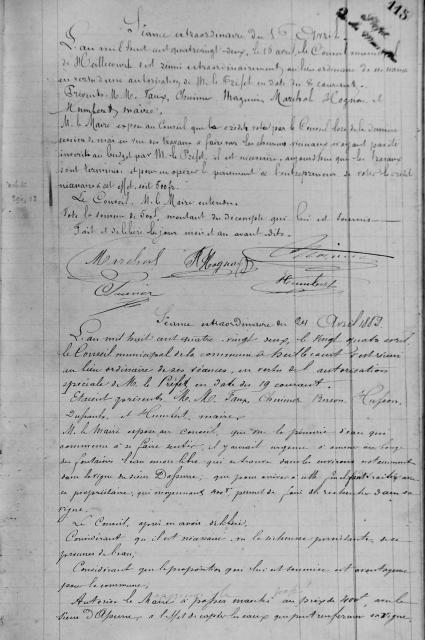 115
Séance extraordinaire du 16 Avril.
L'an mil huit cent quatre vingt deux, le 16 avril, le Conseil municipal
de Heillecourt est réuni extraordinairement, au lieu ordinaire de ses séances
en vertu d'une autorisation de M. le Préfet en date du 8 courant.
Présents M.M. Faux, Thuinier Marchal Hognon et
Humbert maire.
M. le Maire expose au Conseil que le crédit voté par le Conseil lors de la dernière
session de mai en vue des travaux à faire sur les chemins ruraux n'ayant pas été
inscrit au budget par M. le Préfet, il est nécessaire, aujourd'hui que les travaux
sont terminés et pour opérer le paiement de l'entrepreneur de voter le crédit
nécessaire à cet effet, soit 500 fr.
Le Conseil, M. le Maire entendu,
Vote la somme de 500f, montant du décompte qui lui est soumis
Fait et délibéré les jour mois et an avant dits.
Marchal Hognon
Humbert
Séance extraordinaire du 24 Avril 1882.
L'an mil huit cent quatre vingt deux, le vingt quatre avril,
le Conseil municipal de la commune de Heillecourt s'est réuni
au lieu ordinaire de ses séances, en vertu de l'autorisation
spéciale de M. le Préfet en date du 19 courant.
Etaient présents M.M. Faux, Thuinier Husson,
et Humbert, maire
M. le Maire expose au Conseil, que vu la pénurie d'eau qui
commence à se faire sentir, il y aurait urgence à amener au
des fontaines l'eau qui se trouve dans les environs notamment
dans la vigne du sieur ; que pour arriver à cette fin il faut traiter avec
ce propriétaire, qui moyennant 400f permet de faire des recherches dans sa
vigne.
Le Conseil, après en avoir délibéré,
Considérant qu'il est nécessaire vu la sécheresse persistante, de se
procurer de l'eau;
Considérant que la proposition qui lui est soumise est avantageuse
pour la commune;
Autorise le Maire à passer marché au prix de 400f, avec le
sieur à l'effet de capter les eaux que peut renfermer sa vigne,